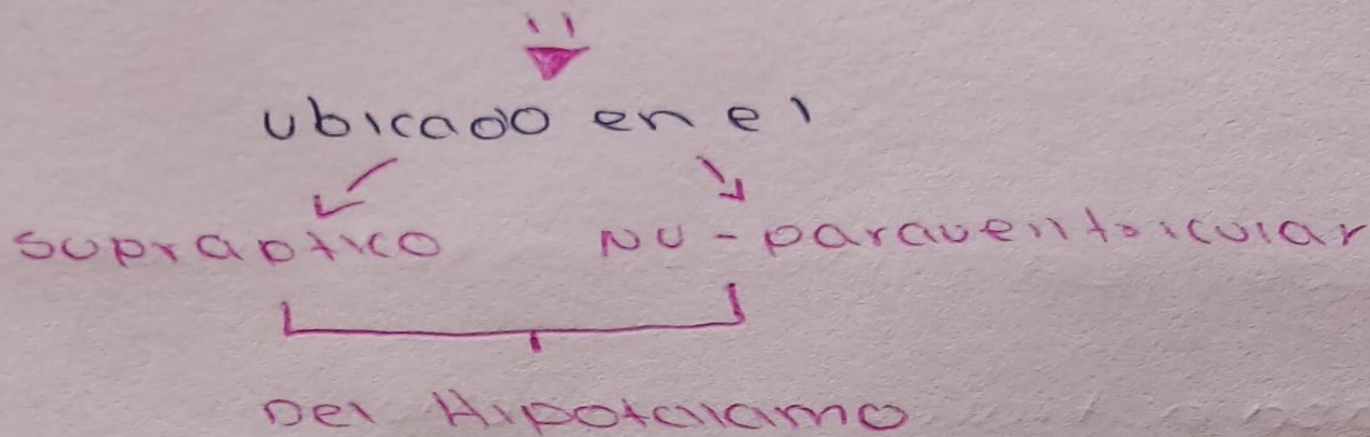 ubicado en el
supraoptico NU-paraventricular
Del Hipotalamo